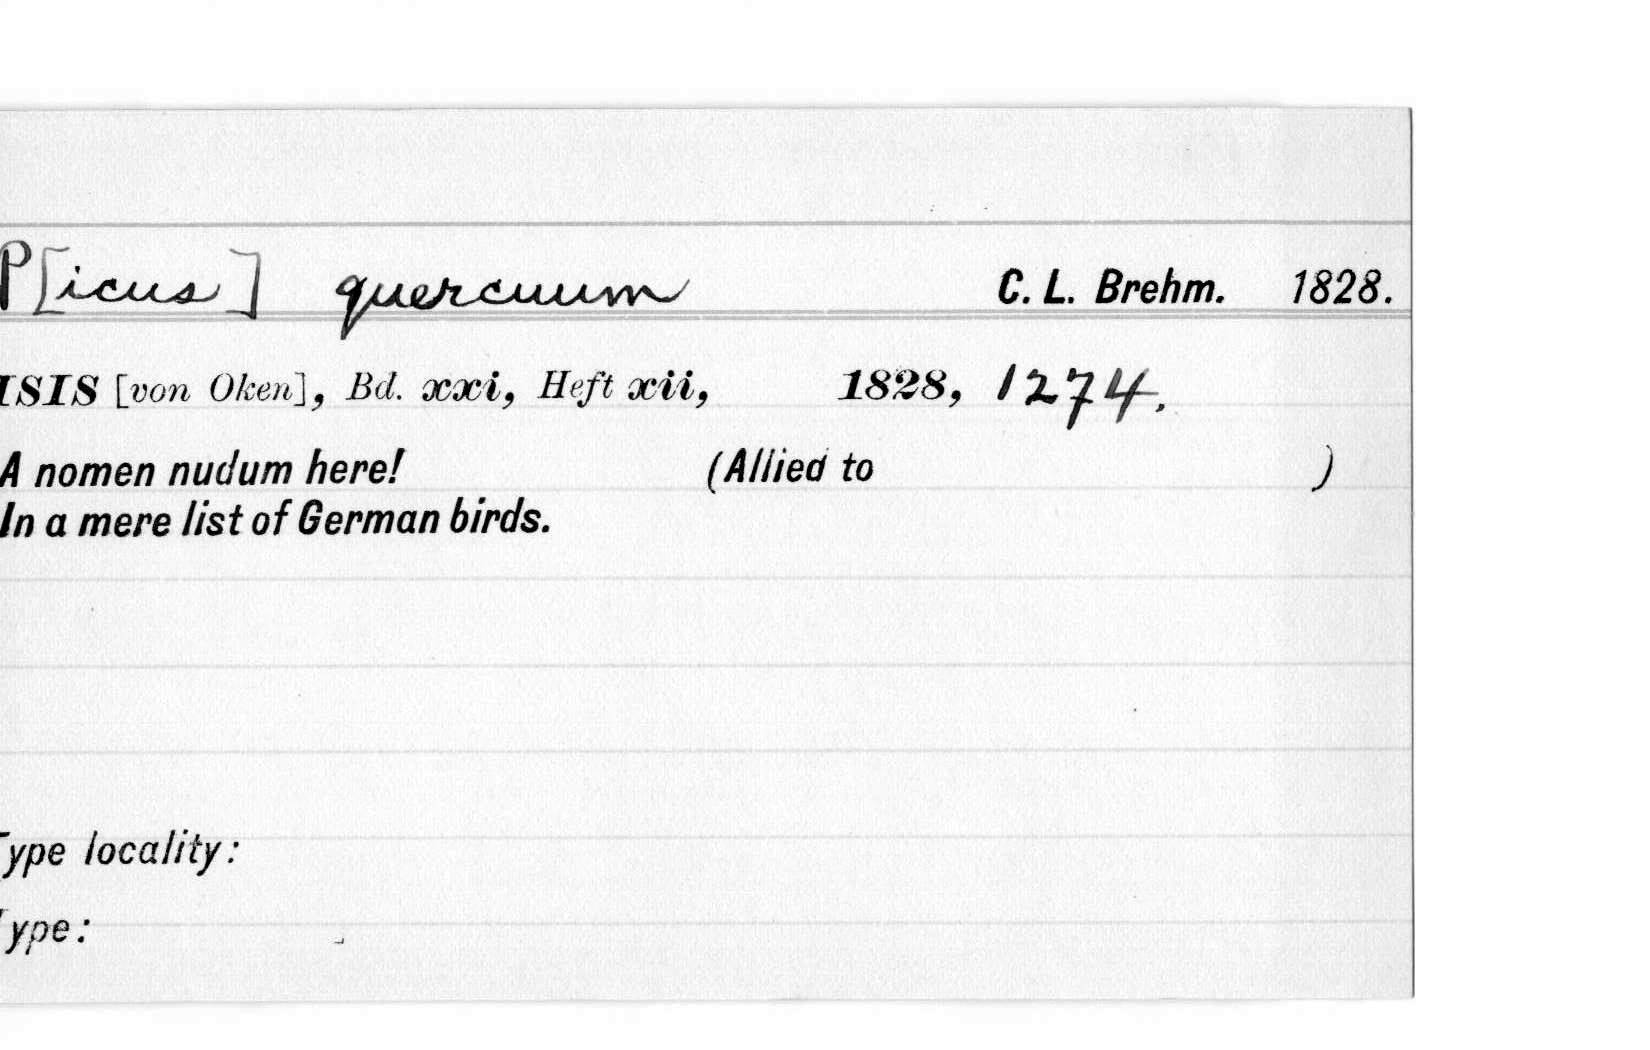 P[icus] quercuum C. L. Brehm. 1828.
ISIS [von Oken], Bd. xxi, Heft xii, 1828, 1274.
A nomen nudum here! (Allied to )
In a mere list of German birds.
Type locality:
Type: